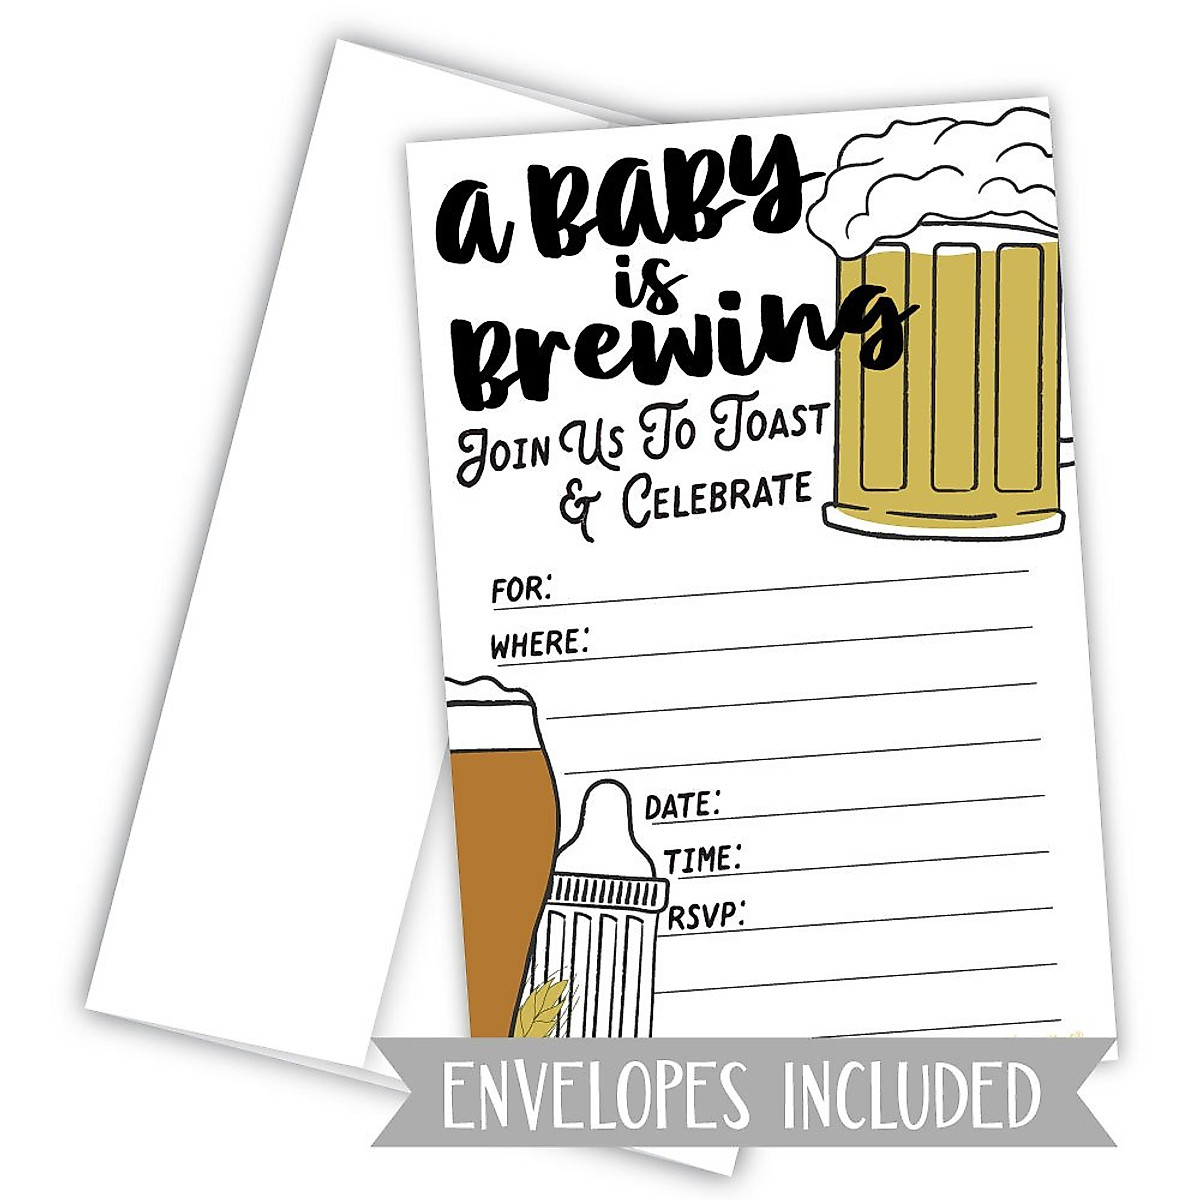 A BABY
is
Brewing
JOIN US TO TOAST
& CELEBRATE
FOR:
WHERE:
DATE:
TIME:
RSVP:
ENVELOPES INCLUDED